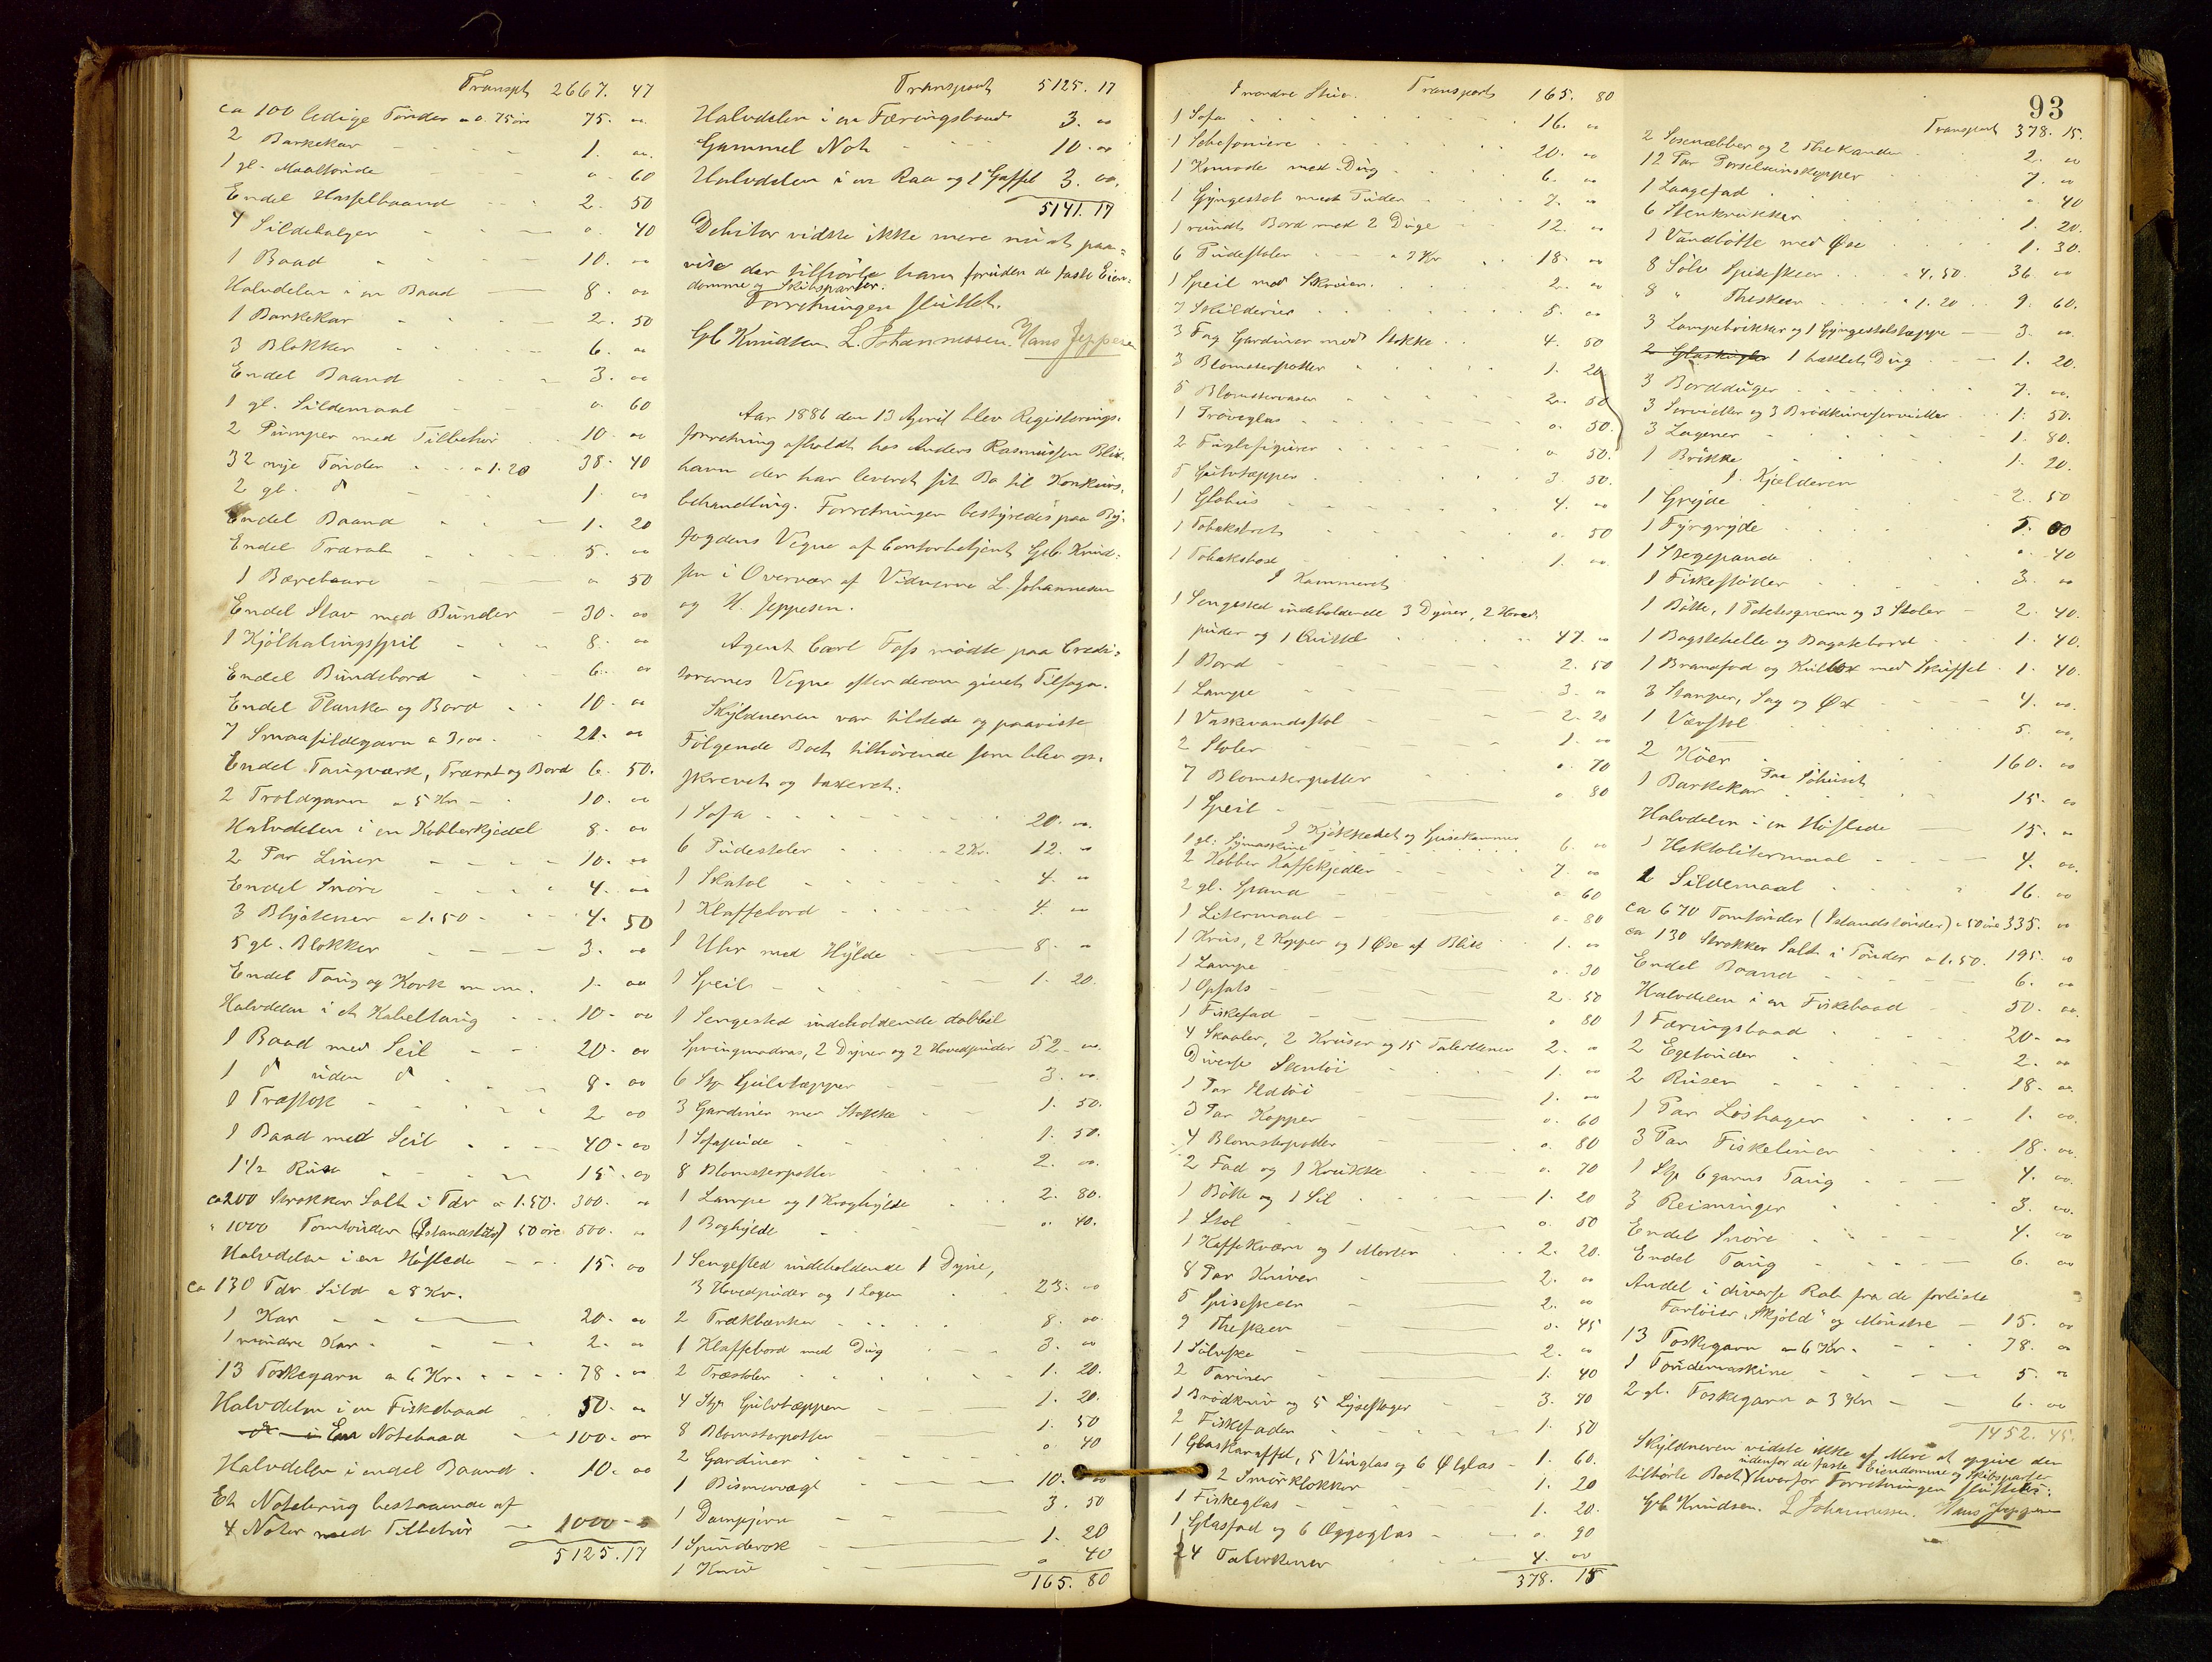 Transpt 2667. 47
ca 100 ledige Tønder a 0.75 øre 75. 00
2 Barkekar 1. 00.
1 gl. Maaltønde 0 60
Endel Hasselbaand 2. 50
4 Sildebalger 0. 40
1 Baad 10. 00
Halvdelen i en Baad 8. 00
1 Barkekar 2. 50
3 Blokker 6. 00
Endel Baand 3. 00
1 gl. Sildemaal 0. 60
2 Pumper med Tilbehør 10. 00
32 nye Tønder a 1.20 38. 40
2 gl. do 1. 00
Endel Baand 1. 20
Endel Trærat 5. 00
1 Bærebaare 0 50
Endel Stav med Bunder 30. 00
1 Kjølhalingsspil 8. 00
Endel Bundebord 6. 00
Endel Planker og Bord 10. 00
7 Smaasildegarn a 3,00 21. 00
Endel Taugværk, Trærat og Bord 6. 50.
2 Troldgarn a 5 Kr 10. 00
Halvdelen i en Kobberkjedel 8. 00
2 Par Liner 10. 00
Endel Snøre 4. 00
3 Blystener a 1.50 4. 50
5 gl. Blokker 3. 00
Endel Taug og Kork m. m. 1. 00
Halvdelen i et Kabeltaug 10. 00
1 Baad med Seil 20. 00
1 do uden do 8. 00
1 Træstok 2 00
1 Baad med Seil 40. 00
1 1/2 Ruse 15. 00
ca 200 Strokker Salt i Tdr a 1.50. 300. 00
" 1000 Tomtønder (Islandstdr) 50 øre 500. 00
Halvdelen i en Høstede 15. 00
ca 130 Tdr Sild a 8 Kr.
1 Kar 20. 00
1 mindre Kar 2. 00
13 Torskegarn a 6 Kr. 78. 00
Halvdelen i en Fiskebaad 50. 00
do i En Notebaad 100. 00
Halvdelen i endel Baand 10. 00
Et Notebrug bestaaende af
4 Noter med Tilbehør 1000 - 0
5125. 17
Transport 5125. 17
Halvdelen i en Færingsbaad 3. 00
Gammel Not 10. 00
Halvdelen i en Raa og 1 Gaffel 3. 00.
5141. 17
Debitor vidste ikke mere nu at paa-
vise der tilhørte ham foruden de faste Eien-
domme og Skibsparter.
Forretningen sluttet.
Gb Knudsen L. Johannessen. Hans Jeppesen
Aar 1886 den 13 April blev Registrerings-
forretning afholdt hos Anders Rasmussen Blix-
havn der har leveret sit Bo til Konkurs-
behandling. Forretningen bestyredes paa By-
fogdens Vegne af Contorbetjent Gb. Knud-
sen i Overvær af Vidnerne L. Johannesen
og H. Jeppesen.
Agent Carl Foss mødte paa Credi-
torernes Vegne efter derom givet Tilsagn.
Skyldneren var tilstede og paaviste
Følgende Boet tilhørende som blev op-
skrevet og taxeret:
1 Sofa 20. 00.
6 Pudestoler a 2 Kr. 12. 00
1 Skatol 4. 00
1 Klaffebord 4. 00
1 Uhr med Hylde 8. 00
1 Speil 1. 20.
1 Sengested indeholdende dobbel
Springmadras, 2 Dyner og 2 Hovedpuder 52. 00.
6 Stk Gulvtæpper 3. 00.
3 Gardiner med Stokke 1. 50.
1 Sofapude 1. 50.
8 Blomsterpotter 2. 00.
1 Lampe og 1 Kraghylde 2. 80.
1 Boghylde 0. 40.
1 Sengested indeholdende 1 Dyne,
3 Hovedpuder og 1 Lagen 23. 00
2 Trækbænker 8. 00.
1 Klaffebord med Dug 3. 00
2 Træstoler 1. 20.
4 Stk Gulvtæpper 1. 20.
8 Blomsterpotter 1. 50
2 Gardiner 0 40
1 Bismervægt 10. 00
1 Dampjern 3. 50
1 Spinderok 1. 20
1 Kurv 0 40
165. 80
93
I nordre Stue. Transport 165. 80
1 Sofa 16. 00
1 Schefoniere 20. 00
1 Komode med Dug 6. 00
1 Gyngestol med Puder 7. 00
1 rundt Bord med 2 Duge 12. 00
6 Pudestoler a 3 Kr 18. 00
1 Speil med Skruer 2. 00
7 Skilderier 5. 00
3 Fag Gardiner med Stokke 4. 50
3 Blomsterpotter 1. 20
5 Blomstervaser 2. 50
1 Prøveglas 0. 50.
2 Fuglefigurer 0 50.
5 Gulvtæpper 3 50.
1 Globus 4. 00
1 Tobaksbret 0. 50
1 Tobaksbox 1. 00
I Kammeret
1 Sengested indeholdende 3 Dyner, 2 Hoved-
puder og 1 Quittel 47. 00
1 Bord 2. 50
1 Lampe 3. 00
1 Vaskevandsstol 2. 20
2 Stoler 1. 00
7 Blomsterpotter 0. 70
1 Speil 0 80
I Kjøkkenet og Spisekammer
1 gl. Symaskine 6. 00
2 Kobber Kaffekjedler 7. 00
2 gl. Spand 0 60
1 Litermaal 0. 80
1 Krus, 2 Kopper og 1 Øse af Blik 1. 00
1 Lampe 0. 30
1 Opsats 2. 50
1 Fiskefad 0 80
4 Skaaler, 2 Kruser og 15 Talerkener 2. 00
Diverse Stentøi 1. 00
1 Par Ildtøi 1. 00
3 Par Kopper 0. 60
4 Blomsterpotter 0. 80
2 Fad og 1 Krukke 0. 70
1 Bøtte og 1 Sil 1. 20
1 Stol 0. 50
1 Kaffekværn og 1 Morter 2. 20.
8 Par Kniver 2. 00
5 Spiseskeer 2. 00
9 Theskeer 0. 45
1 Sølvske 2. 00
2 Tariner 1. 40
1 Brødkniv og 5 Lysestager 3. 70
2 Fiskefader 1. 50
1 Glaskaraffel, 5 Vinglas og 6 Ølglas 1. 60.
2 Smørklokker 1. 20
1 Fiskeglas 1. 20.
1 Glasfad og 6 Æggeglas 0. 90
24 Talerkener 4. 00
378. 15
Transport 378. 15.
2 Sosenæbber og 2 Thekander 2. 00
12 Par Porselainskopper 7. 00
1 Laagefad 0 40
6 Stenkrukker 1. 20.
1 Vandbøtte med Øse 1. 30.
8 Sølv Spiseskeer a 4.50. 36. 00
8 " Theskeer a 1.20 9. 60.
3 Lampebrikker og 1 Gyngestolstæppe 3. 00.
1 hæklet Dug 1. 20.
3 Bordduger 7. 00.
3 Servietter og 3 Brødkurvservietter 1. 50.
3 Lagener 1. 80.
1 Brikke 1. 20.
I Kjelderen
1 Gryde 2. 50
1 Fyrgryde 5. 00
1 Stegepande 0. 40
1 Fiskestøder 3. 00
1 Bøtte, 1 Potetesqværn og 3 Stoler 2. 40.
1 Bagstehelle og Bagstebord 1. 40.
1 Brandfad og Kulbox med Skuffel 1. 40.
3 Stamper, Sag og Øx 4. 00.
1 Vævstol 5. 00.
2 Køer 160. 00
Paa Søhuset
1 Barkekar 15. 00
Halvdelen i en Høstede 15. 00
1 Hektolitermaal 4. 00.
2 Sildemaal 16. 00
ca 670 Tomtønder (Islandstønder) a 50 øre 335. 00
ca 130 Strokker Salt i Tønder a 1.50. 195. 00
Endel Baand 6. 00
Halvdelen i en Fiskebaad 50. 00.
1 Færingsbaad 20. 00
2 Egetønder 2. 00
2 Ruser 18. 00
1 Par Løshager 1. 00.
3 Par Fiskeliner 18. 00.
1 Stk 6 garns Taug 4. 00.
3 Reisninger 3. 00.
Endel Snøre 4. 00
Endel Taug 6. 00
Andel i diverse Rat fra de forliste
Fartøier "Skjold" og Mønstre 15. 00
13 Torskegarn a 6 Kr. 78. 00
1 Tøndemaskine 5. 00
2 gl. Torskegarn a 3 Kr 6. 00
1452. 45.
Skyldneren vidste ikke af Mere at opgive der
udenfor de faste Eiendomme og Skibsparter
tilhørte Boet, hvorfor Forretningen sluttedes.
Gb Knudsen. L Johannessen. Hans Jeppesen